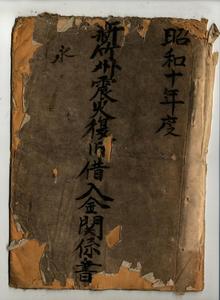 昭和十年度
新竹州震災復旧借入金関係書
永